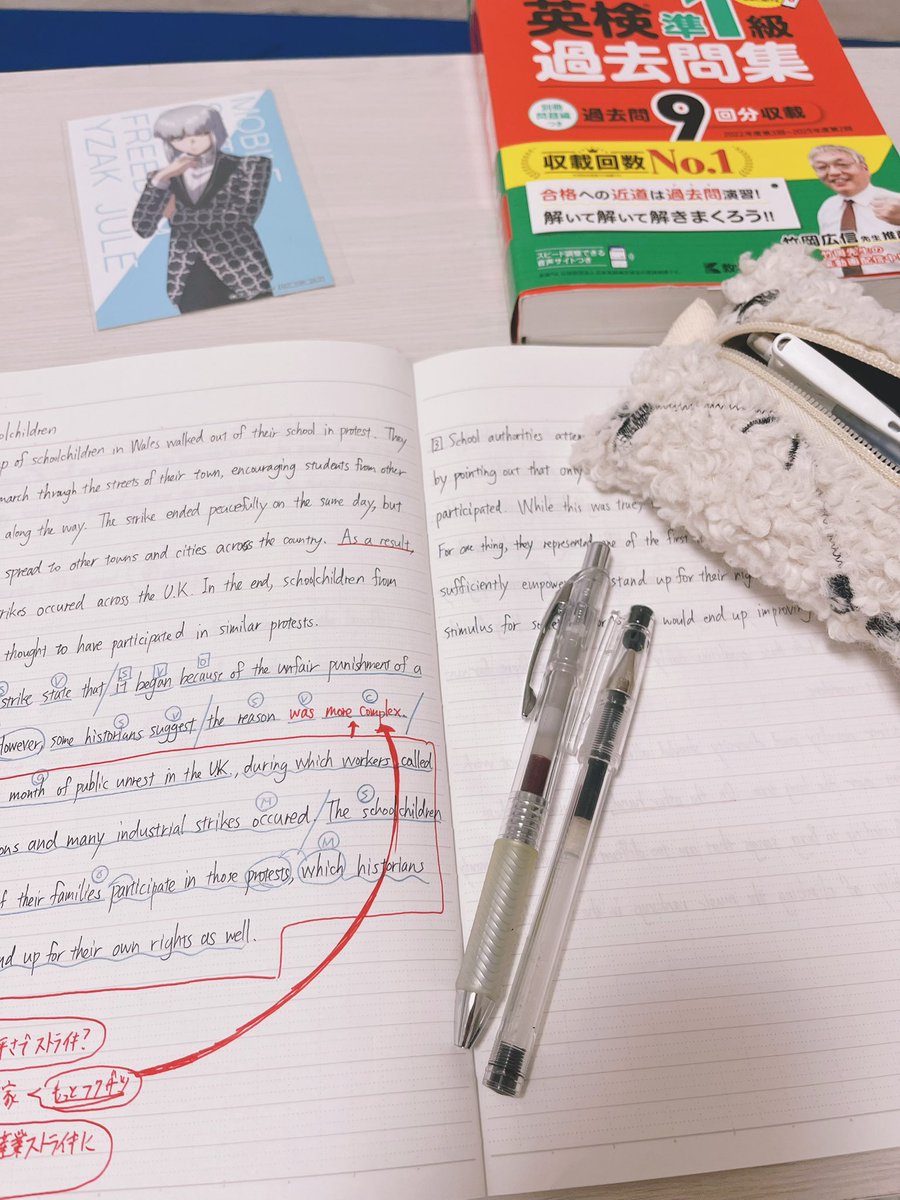 英検準1級
過去問集
別冊
問題編
つき
過去問9回分収載
収載回数No.1
合格への近道は過去問演習!
解いて解いて解きまくろう!!
竹岡広信先生推薦
スピード調整できる
音声サイトつき
MOBILE
FREEDOM
YZAK JULE
olchildren
p of schoolchildren in Wales walked out of their school in protest. They
march through the streets of their town, encouraging students from other
along the way. The strike ended peacefully on the same day, but
spread to other towns and cities across the country. As a result,
rikes occured across the U.K. In the end, schoolchildren from
thought to have participated in similar protests.
S V S V O
strike state that / it began because of the unfair punishment of a
S V S V C
However, some historians suggest / the reason was more complex. /
month of public unrest in the UK, during which workers called
M S
ons and many industrial strikes occured / The schoolchildren
M
f their families participate in those protests, which historians
nd up for their own rights as well.
ストライキ?
家 < もっとフクザツ
産業ストライキに
3 School authorities atte
by pointing out that only
participated. While this was true,
For one thing, they represent one of the first
sufficiently empowe stand up for their rig
stimulus for would end up improving